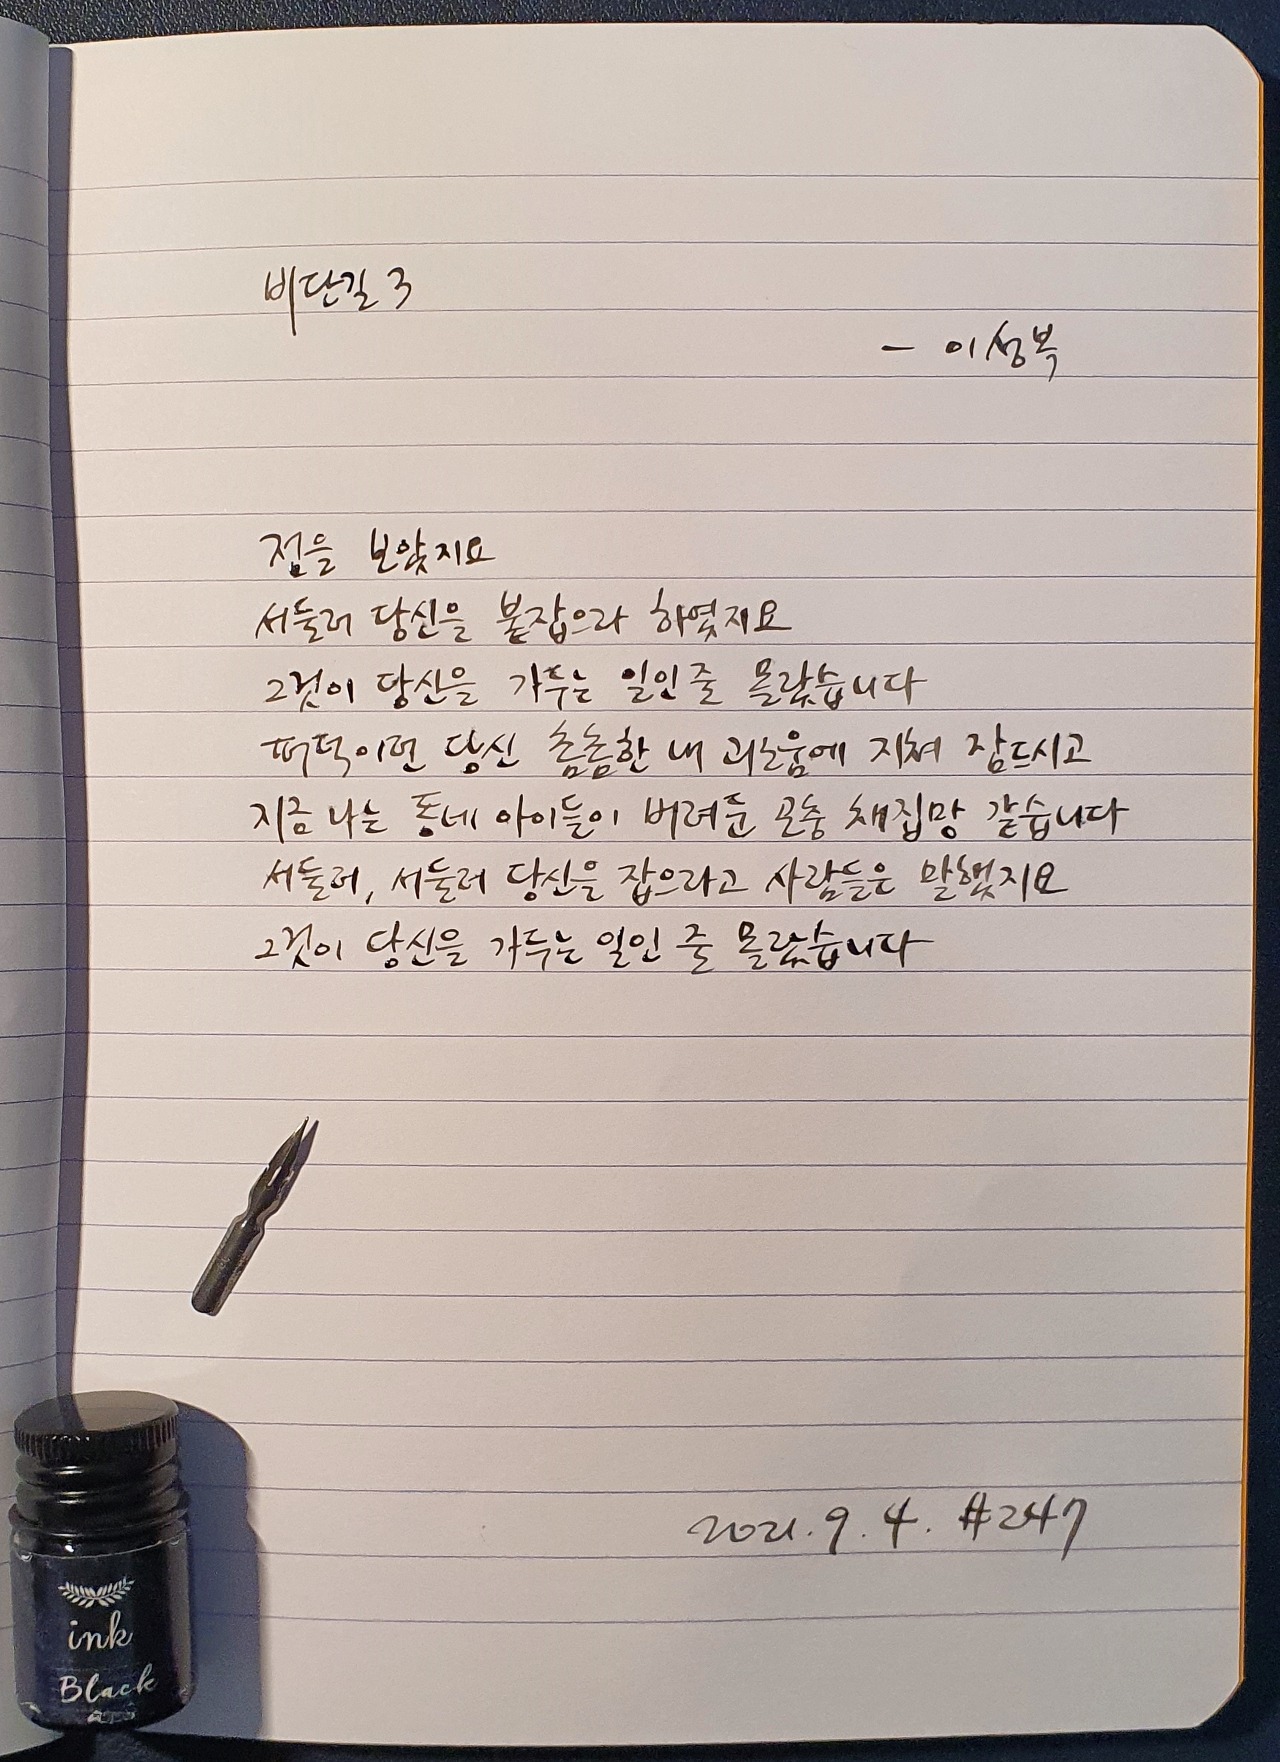 비단길 3
- 이성복
점을 보았지요
서둘러 당신을 붙잡으라 하였지요
그것이 당신을 가두는 일인 줄 몰랐습니다
퍼덕이던 당신 촘촘한 내 괴로움에 지쳐 잠드시고
지금 나는 동네 아이들이 버려둔 곤충 채집망 같습니다
서둘러, 서둘러 당신을 잡으라고 사람들은 말했지요
그것이 당신을 가두는 일인 줄 몰랐습니다
2021. 9. 4. #247
ink
Black